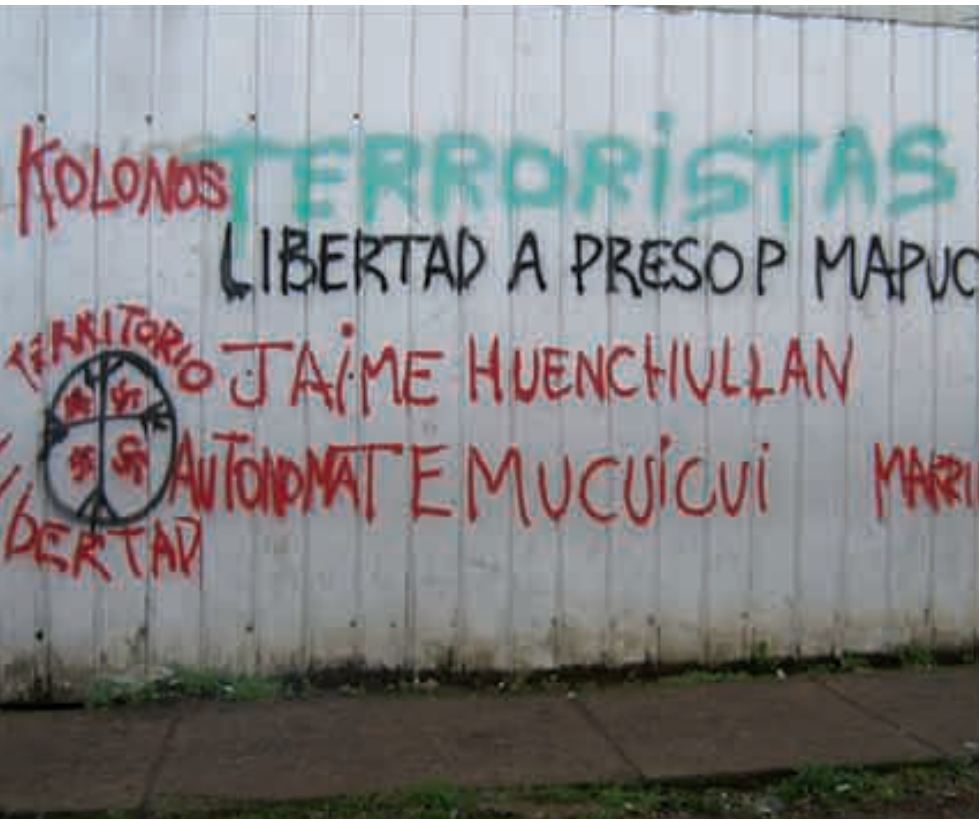 KOLONOS TERRORISTAS
LIBERTAD A PRESO P MAPUC
TERRITORIO
JAIME HUENCHULLAN
AUTONOMA TEMUCUICUI MARRI
LIBERTAD